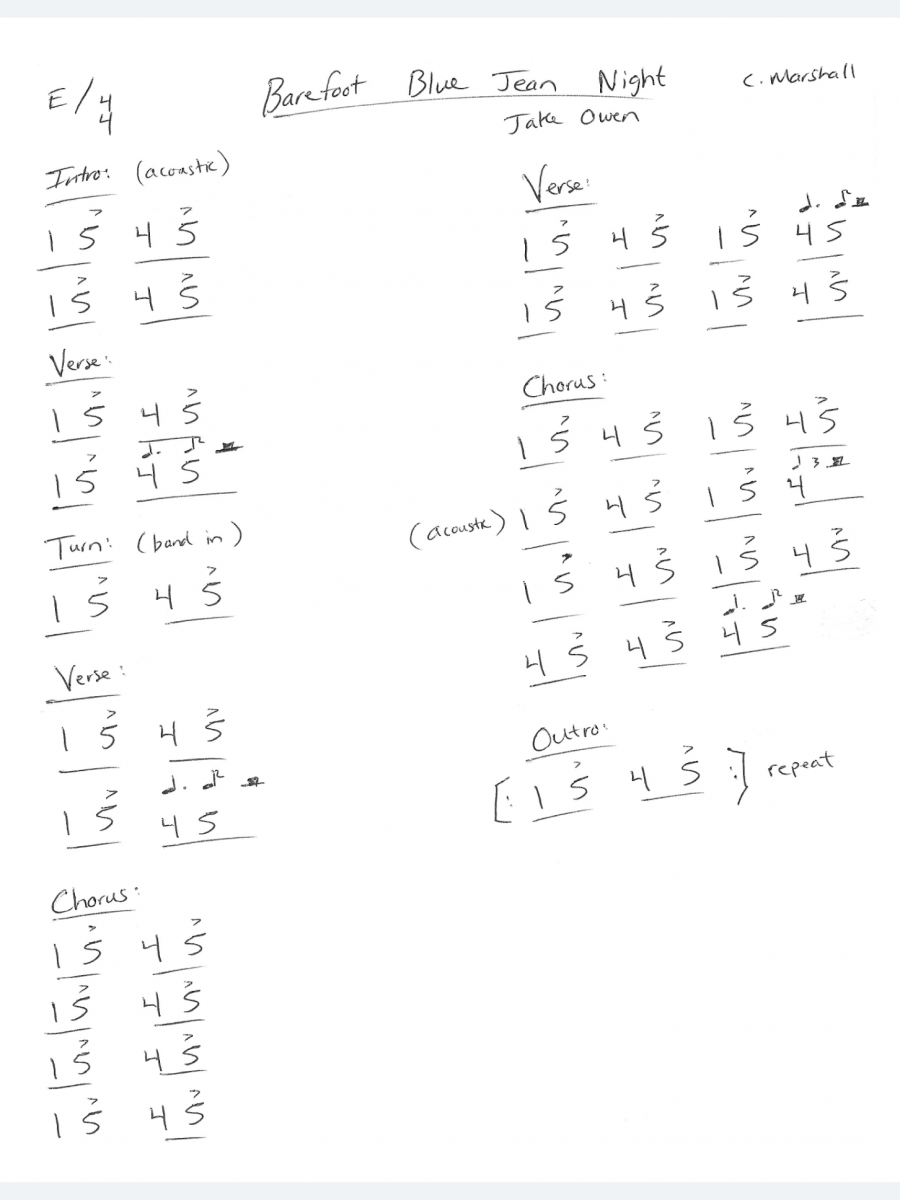 E/4/4 Barefoot Blue Jean Night C. Marshall
Jake Owen
Intro: (acoustic)
1 5 4 5
1 5 4 5
Verse:
1 5 4 5
1 5 4 5
Turn: (band in)
1 5 4 5
Verse:
1 5 4 5
1 5 4 5
Chorus:
1 5 4 5
1 5 4 5
1 5 4 5
1 5 4 5
Verse:
1 5 4 5 1 5 4 5
1 5 4 5 1 5 4 5
Chorus:
1 5 4 5 1 5 4 5
(acoustic) 1 5 4 5 1 5 4
1 5 4 5 1 5 4 5
4 5 4 5 4 5
Outro:
[: 1 5 4 5 :] repeat